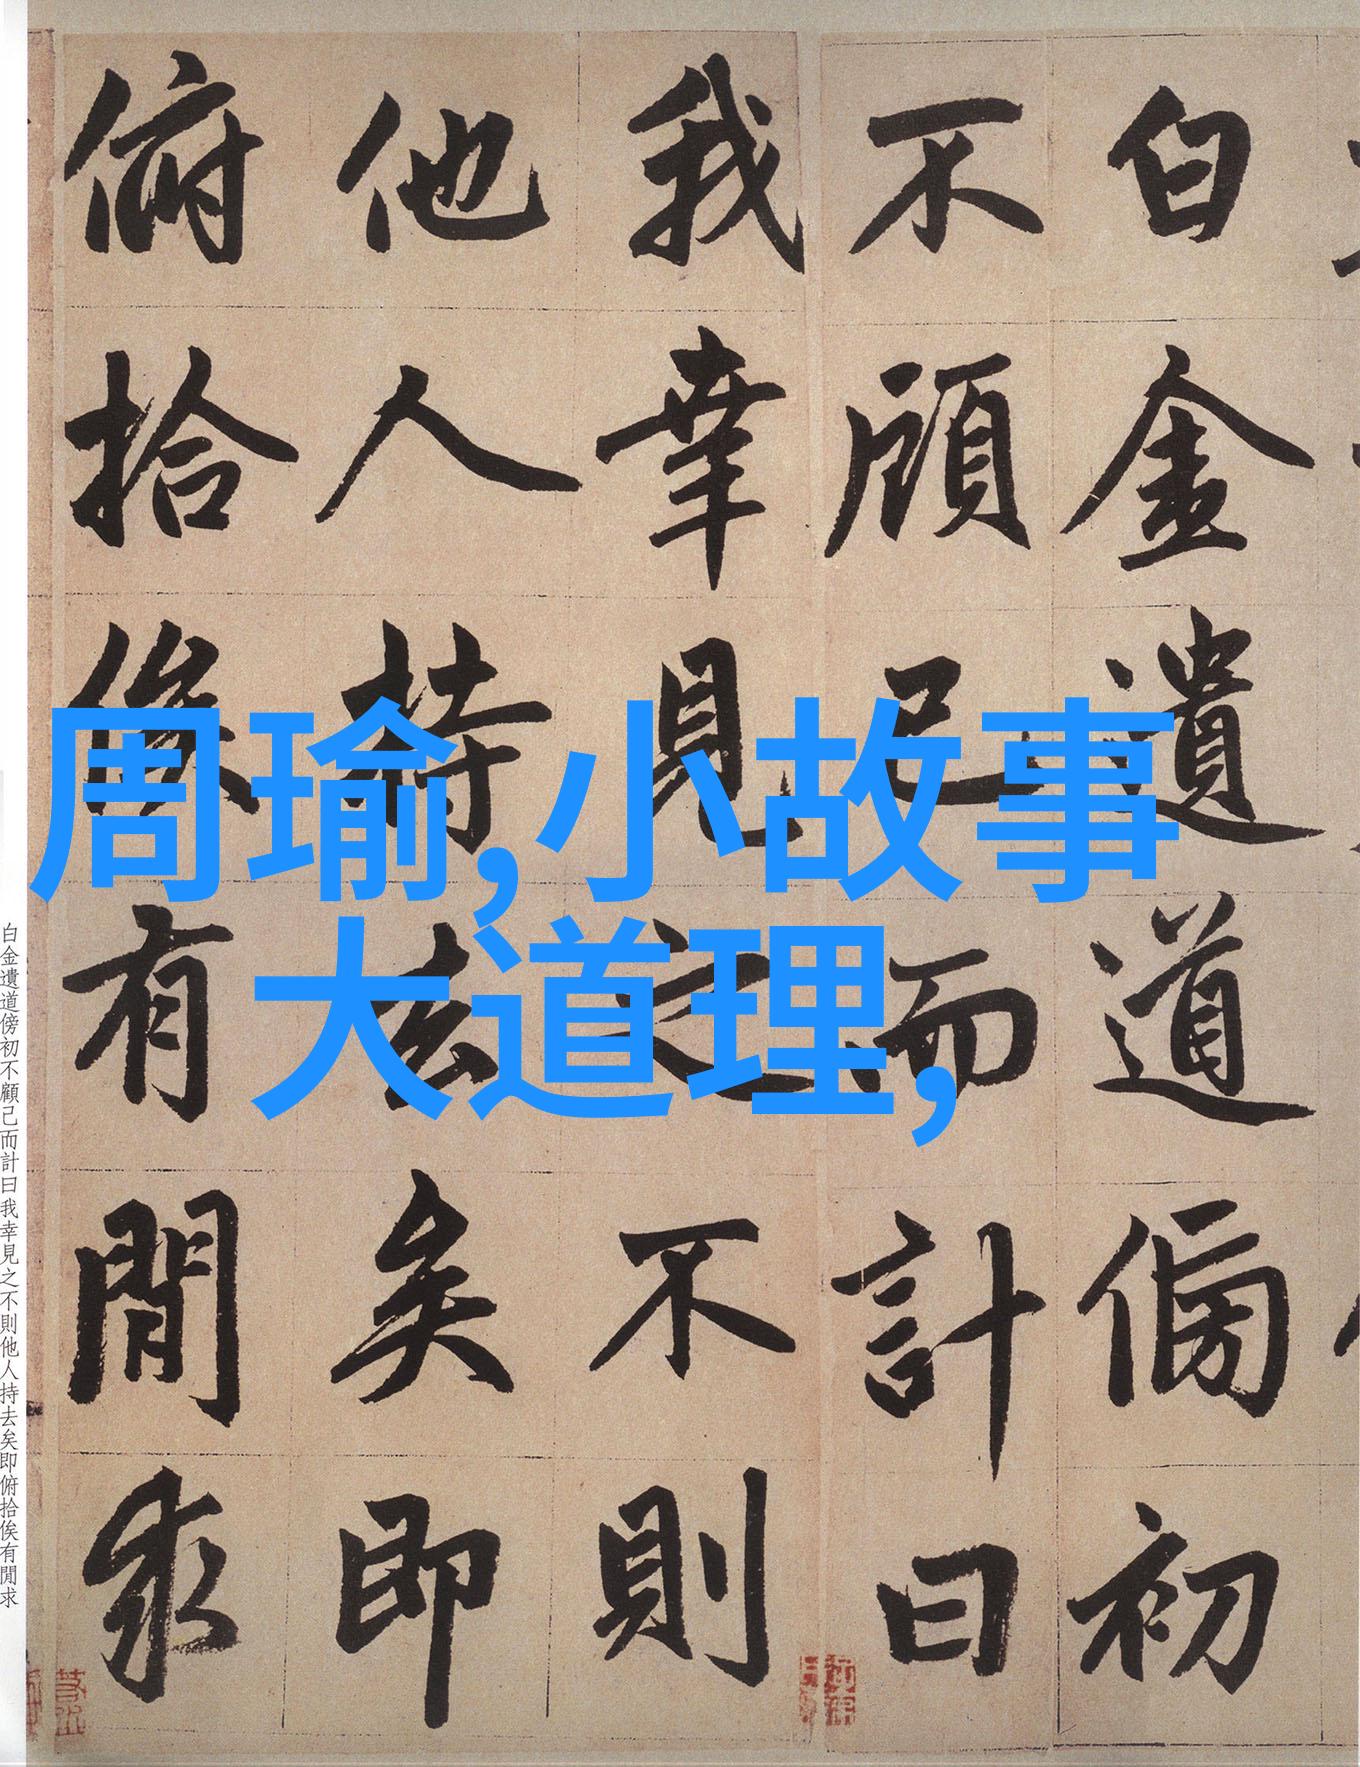 白金遺道傍初
不顧己而計曰
我幸見之不則
他人持去矣即
俯拾俟有閒求
周瑜,小故事
大道理,
白金遺道傍初不顧己而計曰我幸見之不則他人持去矣即俯拾俟有閒求